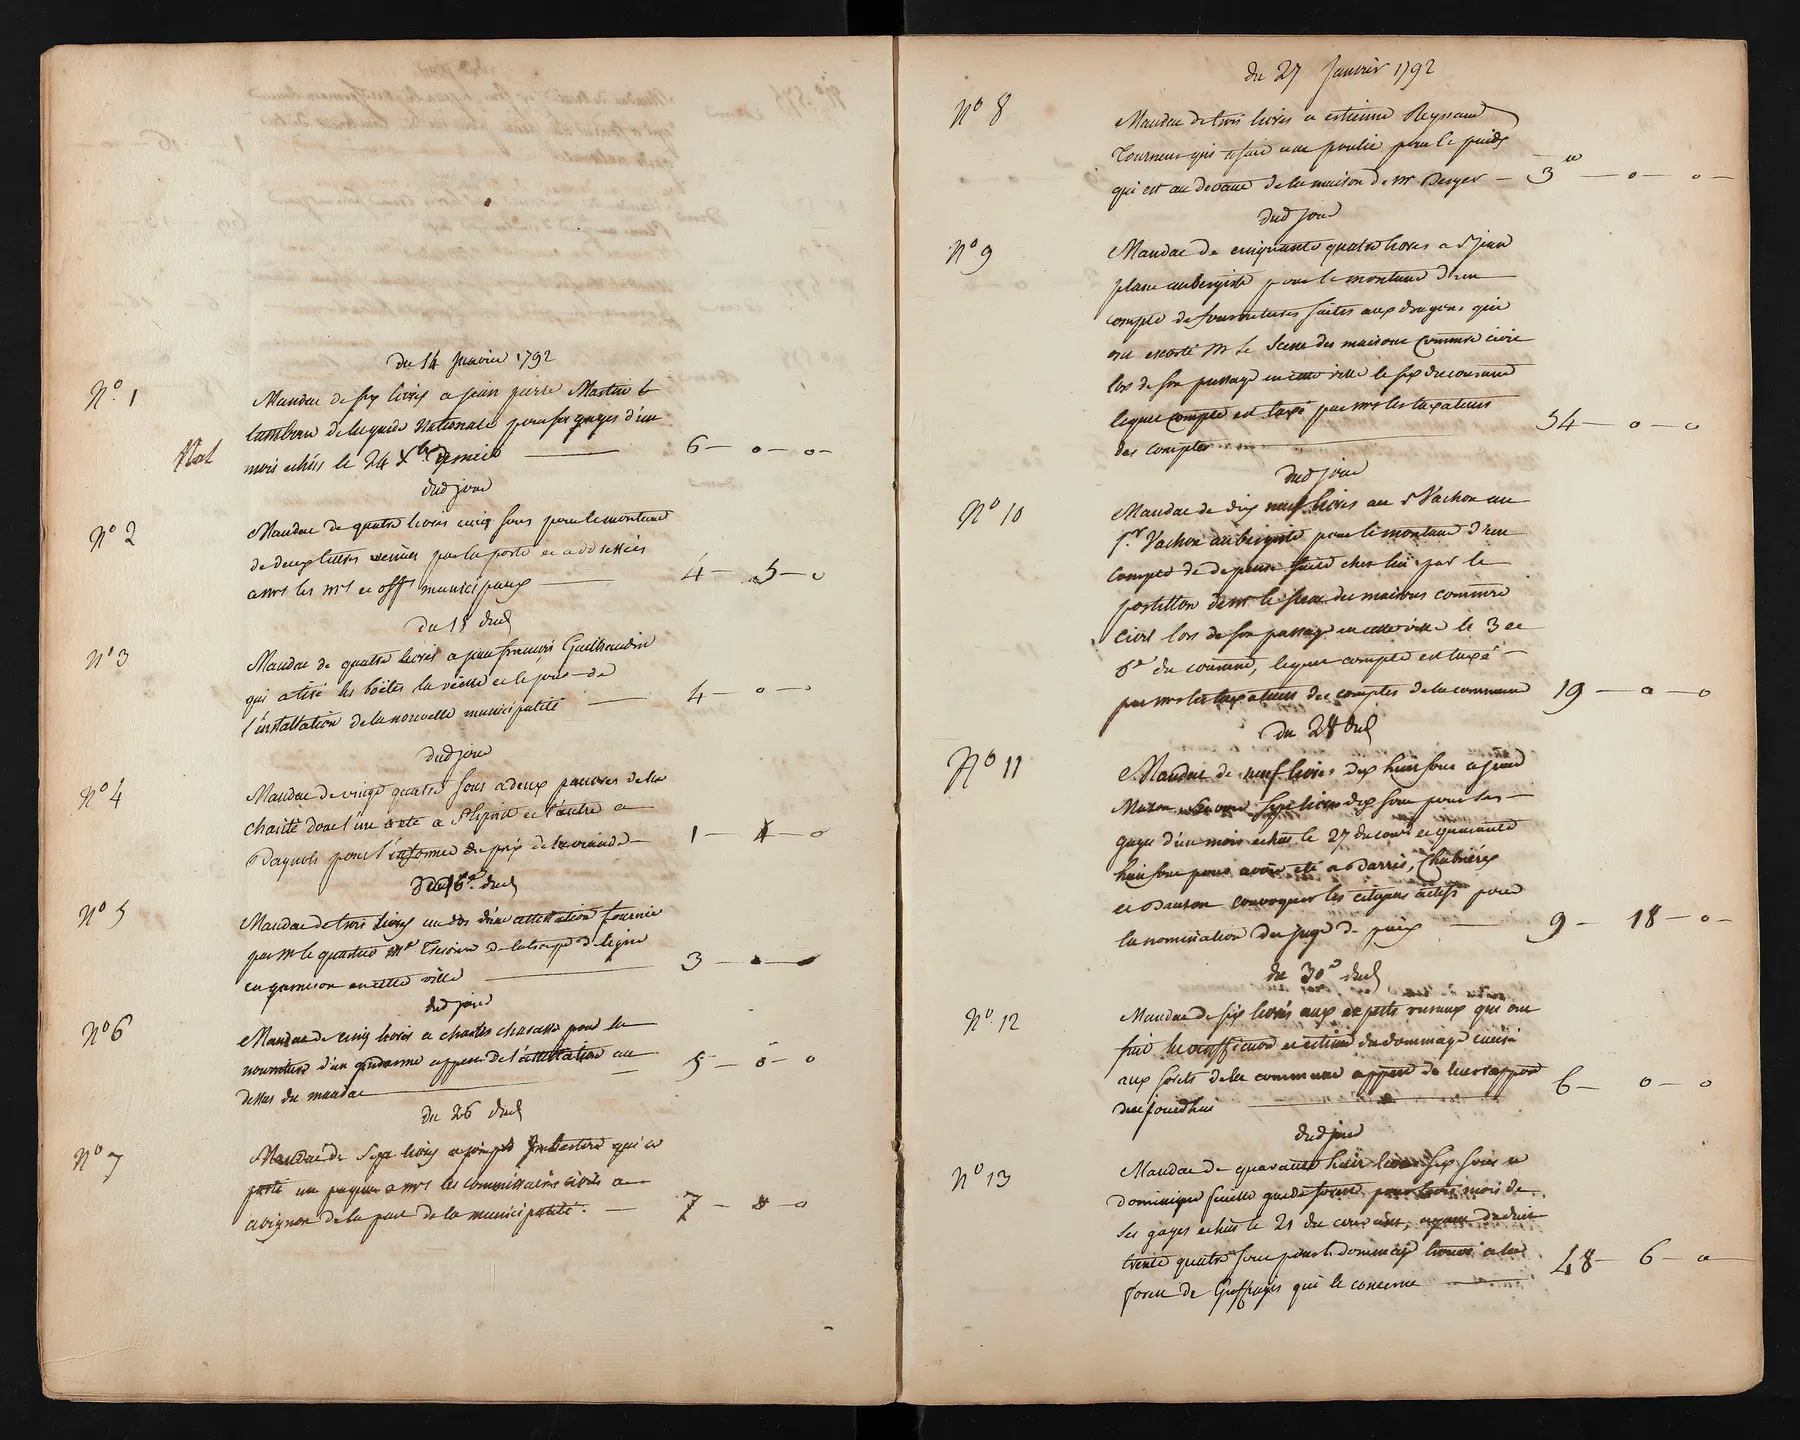 du 14 Janvier 1792
N.o 1
Mandat de six livres a jean pierre Martin
tambour de la garde Nationale pour ses gages d'un
Nat
mois echus le 24 Xbre dernier 6 - 0 - 0 -
dud jour
No 2
Mandat de quatre livres cinq sous pour le montant
de deux lettres venues par la poste et addressées
a mrs les mrs et offs municipaux 4 - 5 - 0
du 15 dud
No 3
Mandat de quatre livres a jean françois
qui a tiré les boëtes la veille et le jour de
l'installation de la nouvelle municipalité 4 - 0 - 0
dud jour
No 4
Mandat de vingt quatre sous a deux pauvres de la
charité dont l'un a eté a St Esprit et l'autre a
Bagnols pour l'informer du prix de la viande 1 - 4 - 0
du 16e dud
No 5
Mandat de trois livres au dos d'une attestation fournie
par Mr le quartier Me Tresorier de la troupe de ligne
en garnison en cette ville 3 - 0 - 0
dud jour
No 6
Mandat de cinq livres a charles pour la
nourriture d'un gendarme appert de l'attestation au
dessus du mandat 5 - 0 - 0
du 26 dud
No 7
Mandat de sept livres a joseph qui a
porté un paquet a mrs les commissaires civils a
avignon de la part de la municipalité. 7 - 0 - 0
du 27 Janvier 1792
No 8
Mandat de trois livres a estienne Reynaud
Tourneur qui a fait une poulie pour le puids
qui est au devant de la maison de Mr Berger 3 - 0 - 0 -
dud jour
No 9
Mandat de cinquante quatre livres a Sr jean
plane aubergiste pour le montant d'un
compte de fournitures faites aux dragons qui
ont escorté Mr le Scene des maisons commre civil
lors de son passage en cette ville le six du courant
lequel compte est taxé par mrs les taxateurs
des comptes 54 - 0 - 0
dud jour
No 10
Mandat de dix neuf livres au Sr Vachon au
Sr Vachon aubergiste pour le montant d'un
compte de depense faite chez lui par le
postillon de Mr le Scene des maisons commre
civil lors de son passage en cette ville le 3 et
6e du courant, lequel compte est taxé
par mrs les taxateurs des comptes de la commune 19 - 0 - 0
du 28 dud
No 11
Mandat de neuf livres dix huit sous a jean
Mazon, savoir sept livres dix sous pour ses
gages d'un mois echus le 27 du cour et quarante
huit sous pour avoir eté a Barris, Chabrières
et Bauzon convoquer les citoyens actifs pour
la nomination du juge de paix 9 - 18 - 0 -
du 30e dud
No 12
Mandat de six livres aux experts ruraux qui ont
fait la verification et estime du dommage causé
aux forets de la commune appert de leur rapport
de ce jourd'hui 6 - 0 - 0
dud jour
No 13
Mandat de quarante huit livres six sous a
dominique feuille garde foret pour trois mois de
ses gages echus le 21 du courant, ayant deduit
trente quatre sous pour le dommage trouvé a la
foret de qui le concerne 48 - 6 - 0